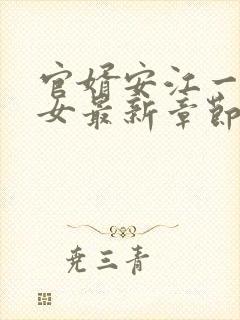 官婿安江一
女最新章節
尧三青